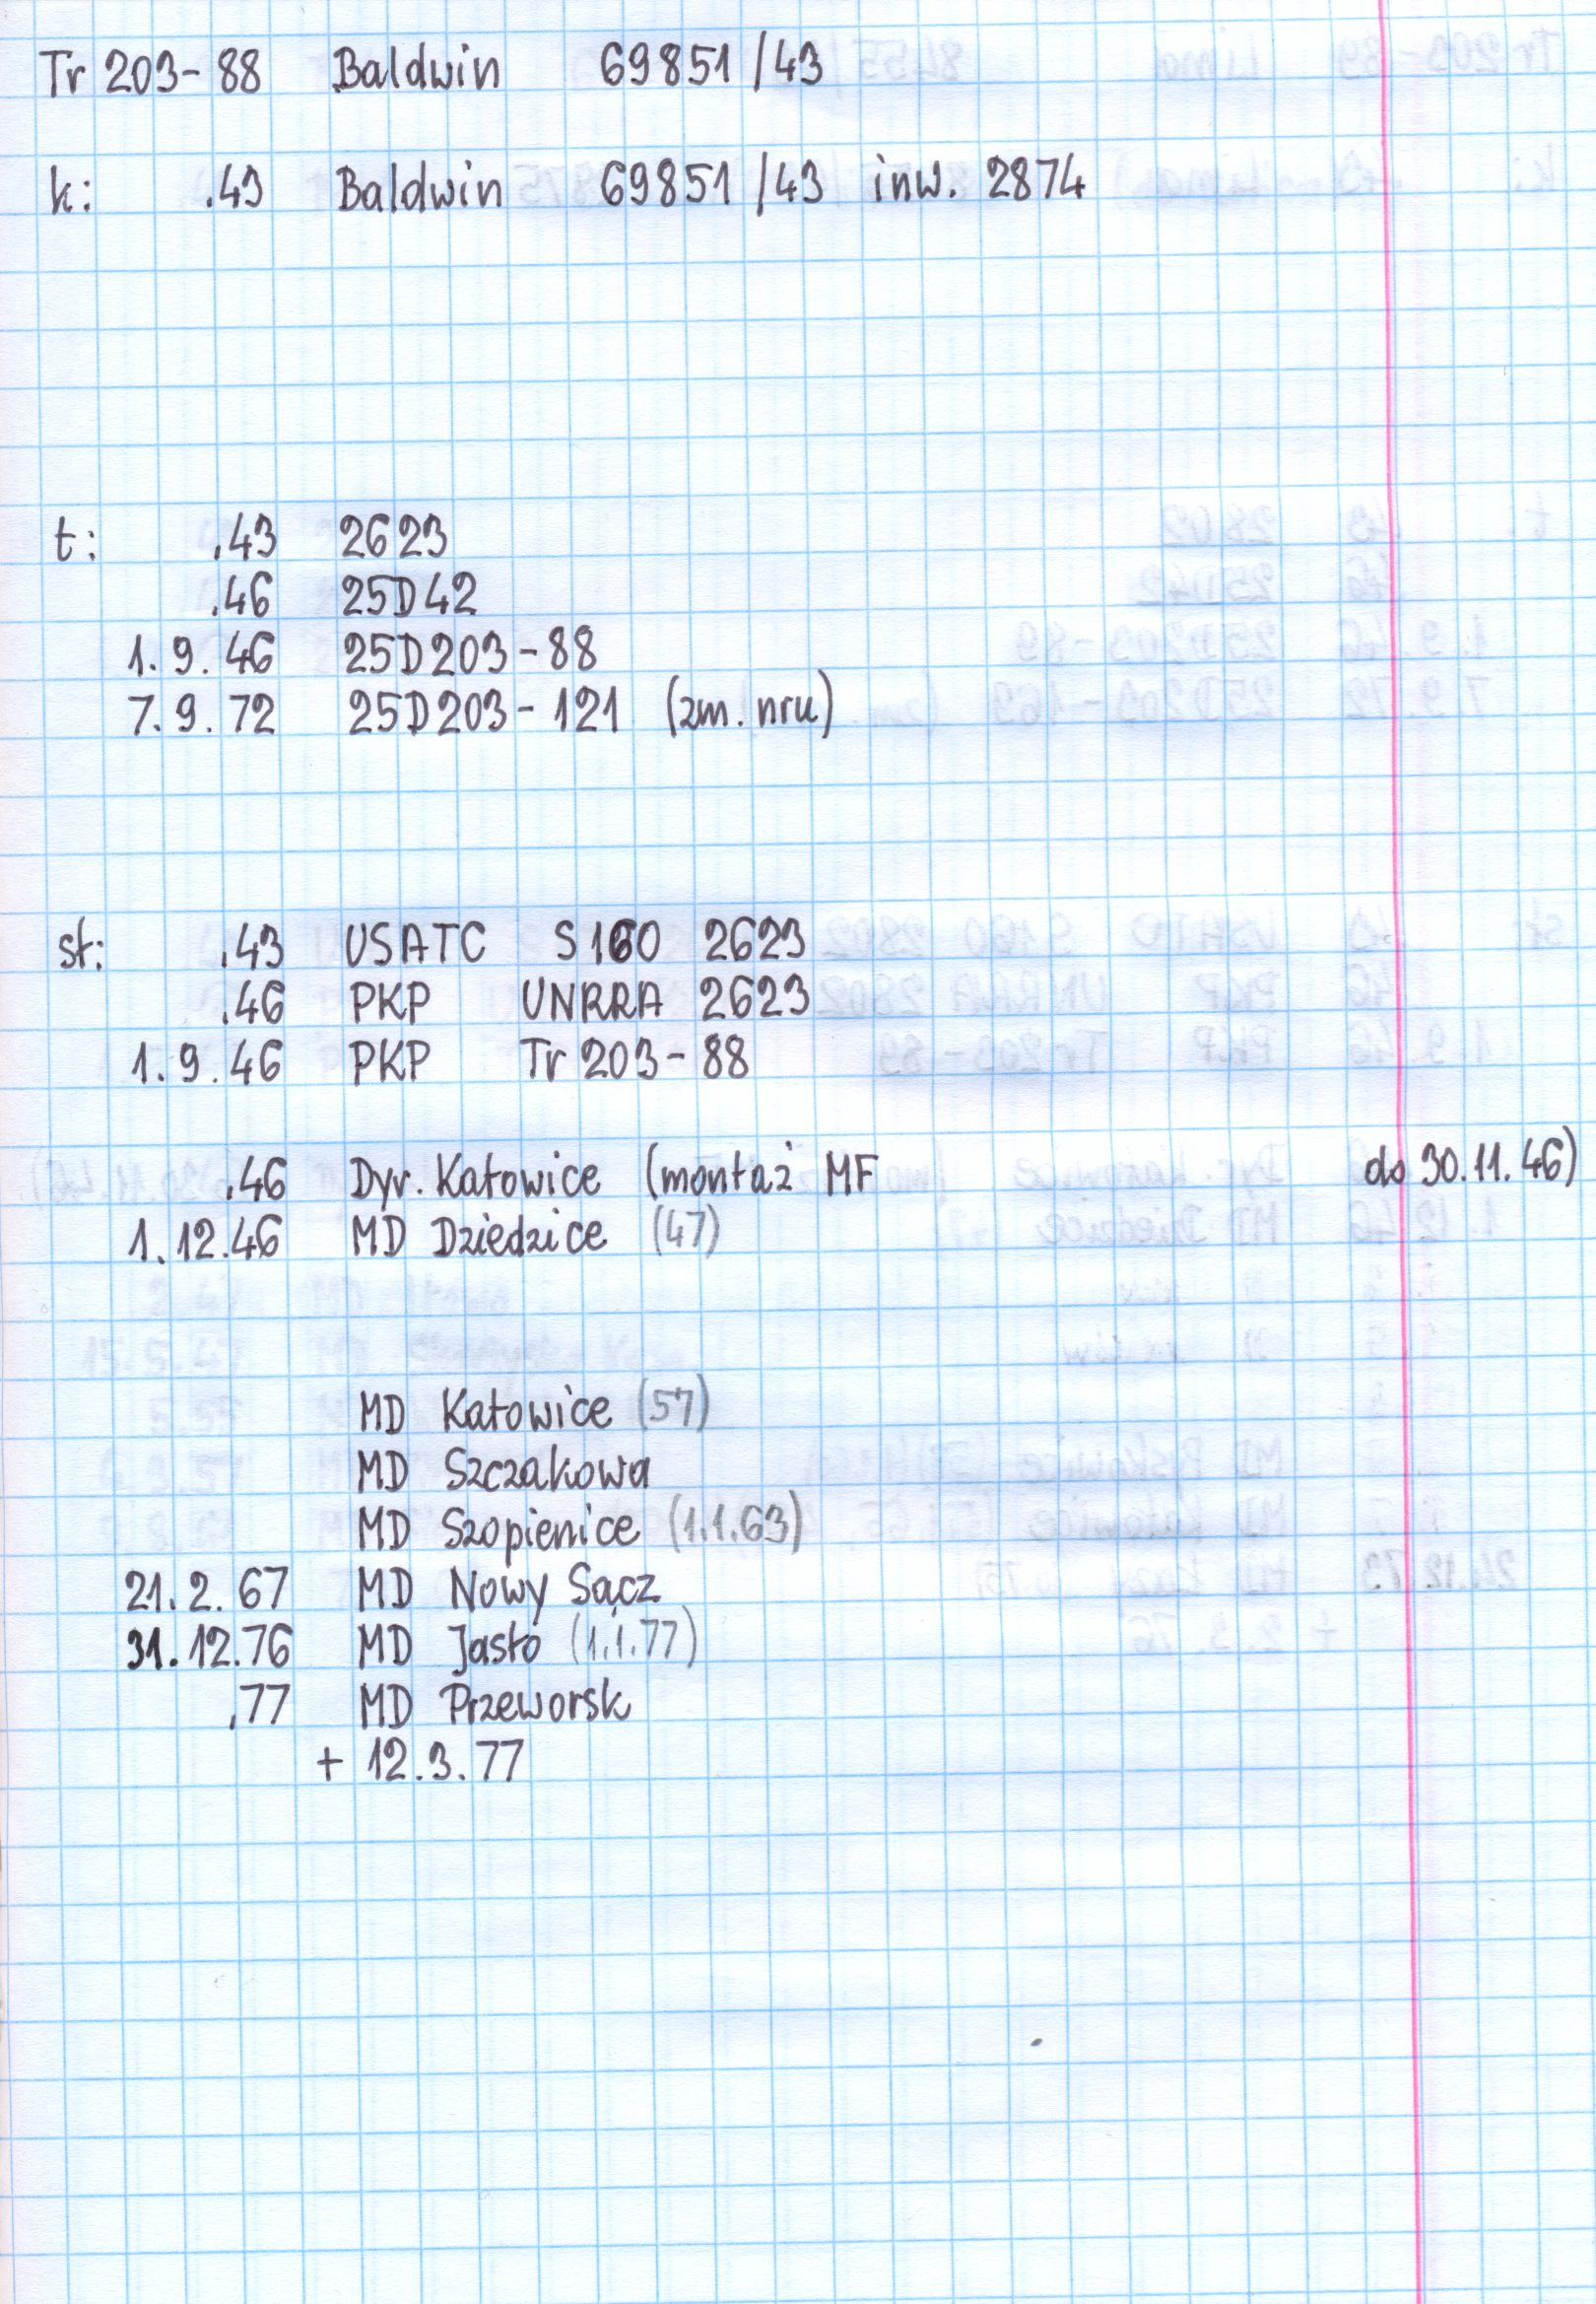 Tr 203-88 Baldwin 69851/43
k: .43 Baldwin 69851/43 inw. 2874
t: .43 2623
.46 25D42
1.9.46 25D203-88
7.9.72 25D203-121 (zm. nru)
st: .43 USATC S160 2623
.46 PKP UNRRA 2623
1.9.46 PKP Tr 203-88
.46 Dyr. Katowice (montaż MF do 30.11.46)
1.12.46 MD Dziedzice (47)
MD Katowice (57)
MD Szczakowa
MD Szopienice (1.1.63)
21.2.67 MD Nowy Sącz
31.12.76 MD Jasło (1.1.77)
.77 MD Przeworsk
+ 12.3.77